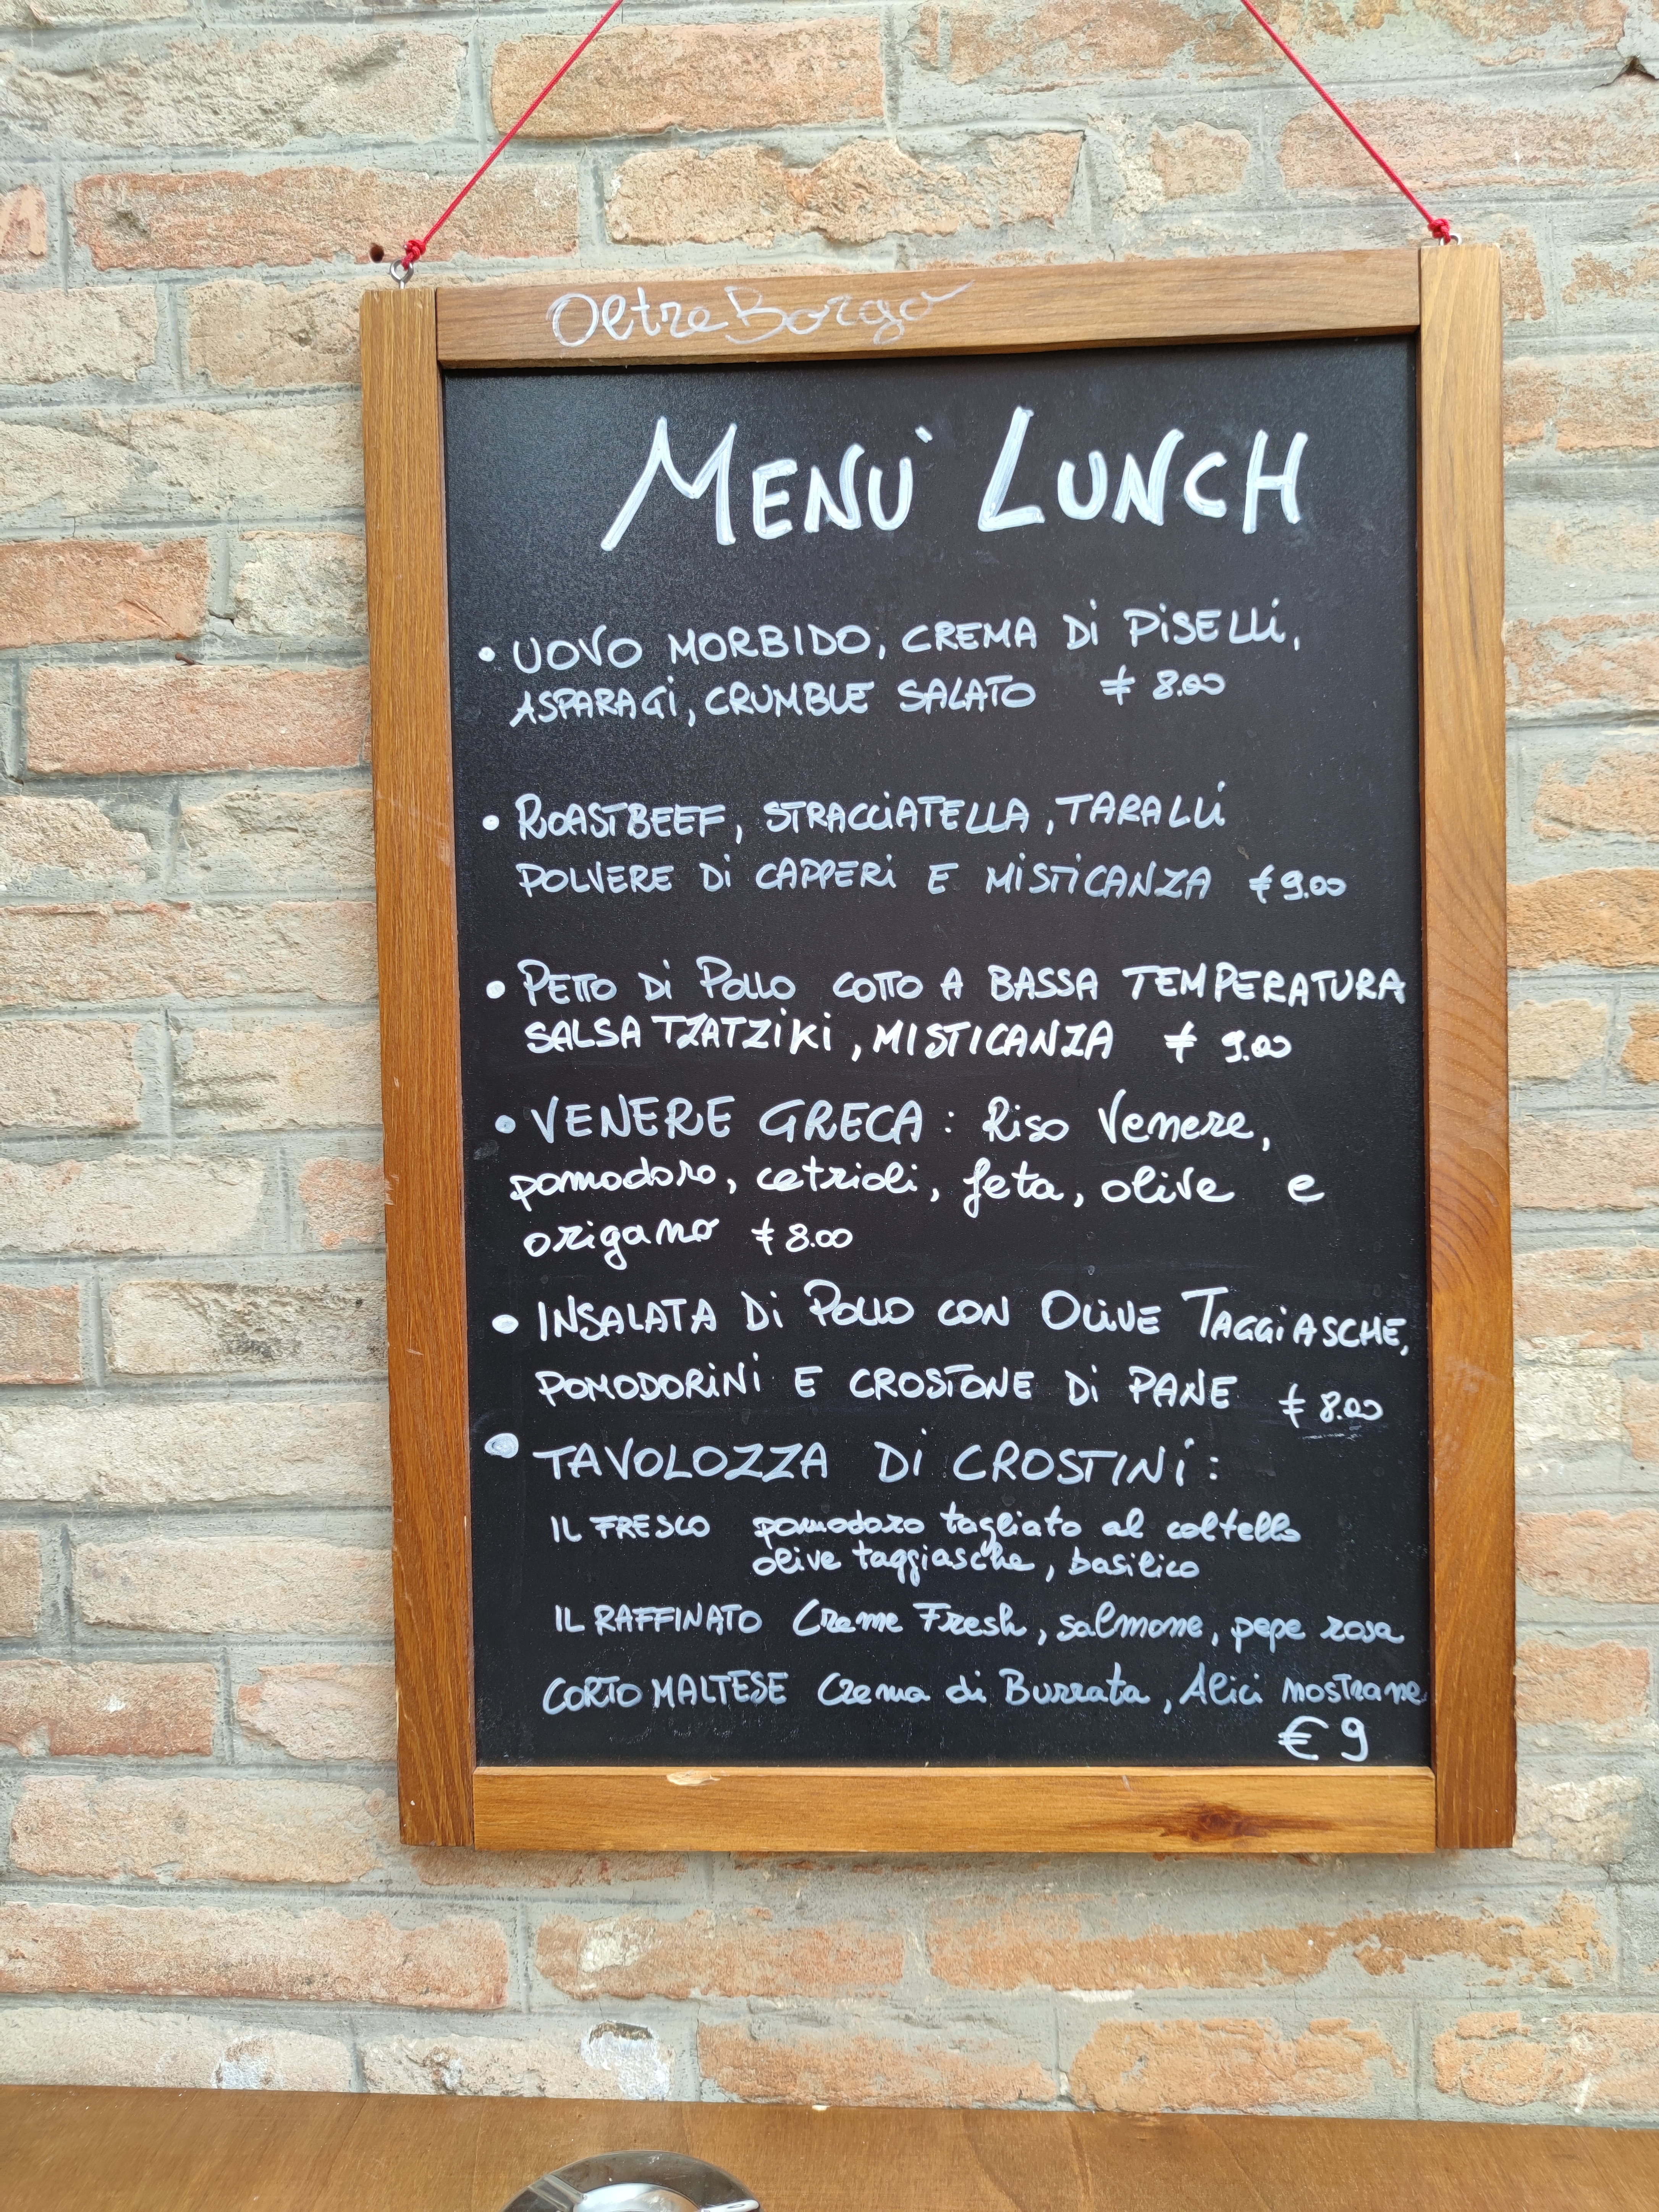 Oltre Borgo
MENÙ LUNCH
• UOVO MORBIDO, CREMA Di PiSELLi,
ASPARAGi, CRUMBLE SALATO € 8.00
• ROASTBEEF, STRACCiATELLA, TARALLi
POLVERE Di CAPPERi E MiSTiCANZA € 9.00
• PETTO Di POLLO COTTO A BASSA TEMPERATURA
SALSA TZATZiKi, MISTICANZA € 9.00
• VENERE GRECA: Riso Venere,
pomodoro, cetrioli, feta, olive e
origano € 8.00
• INSALATA Di POLLO CON OLiVE TAGGiASCHE,
POMODORiNi E CROSTONE Di PANE € 8.00
• TAVOLOZZA Di CROSTINi:
IL FRESCO pomodoro tagliato al coltello
olive taggiasche, basilico
IL RAFFINATO Creme Fresh, salmone, pepe rosa
CORTO MALTESE Crema di Burrata, Alici nostrane
€ 9